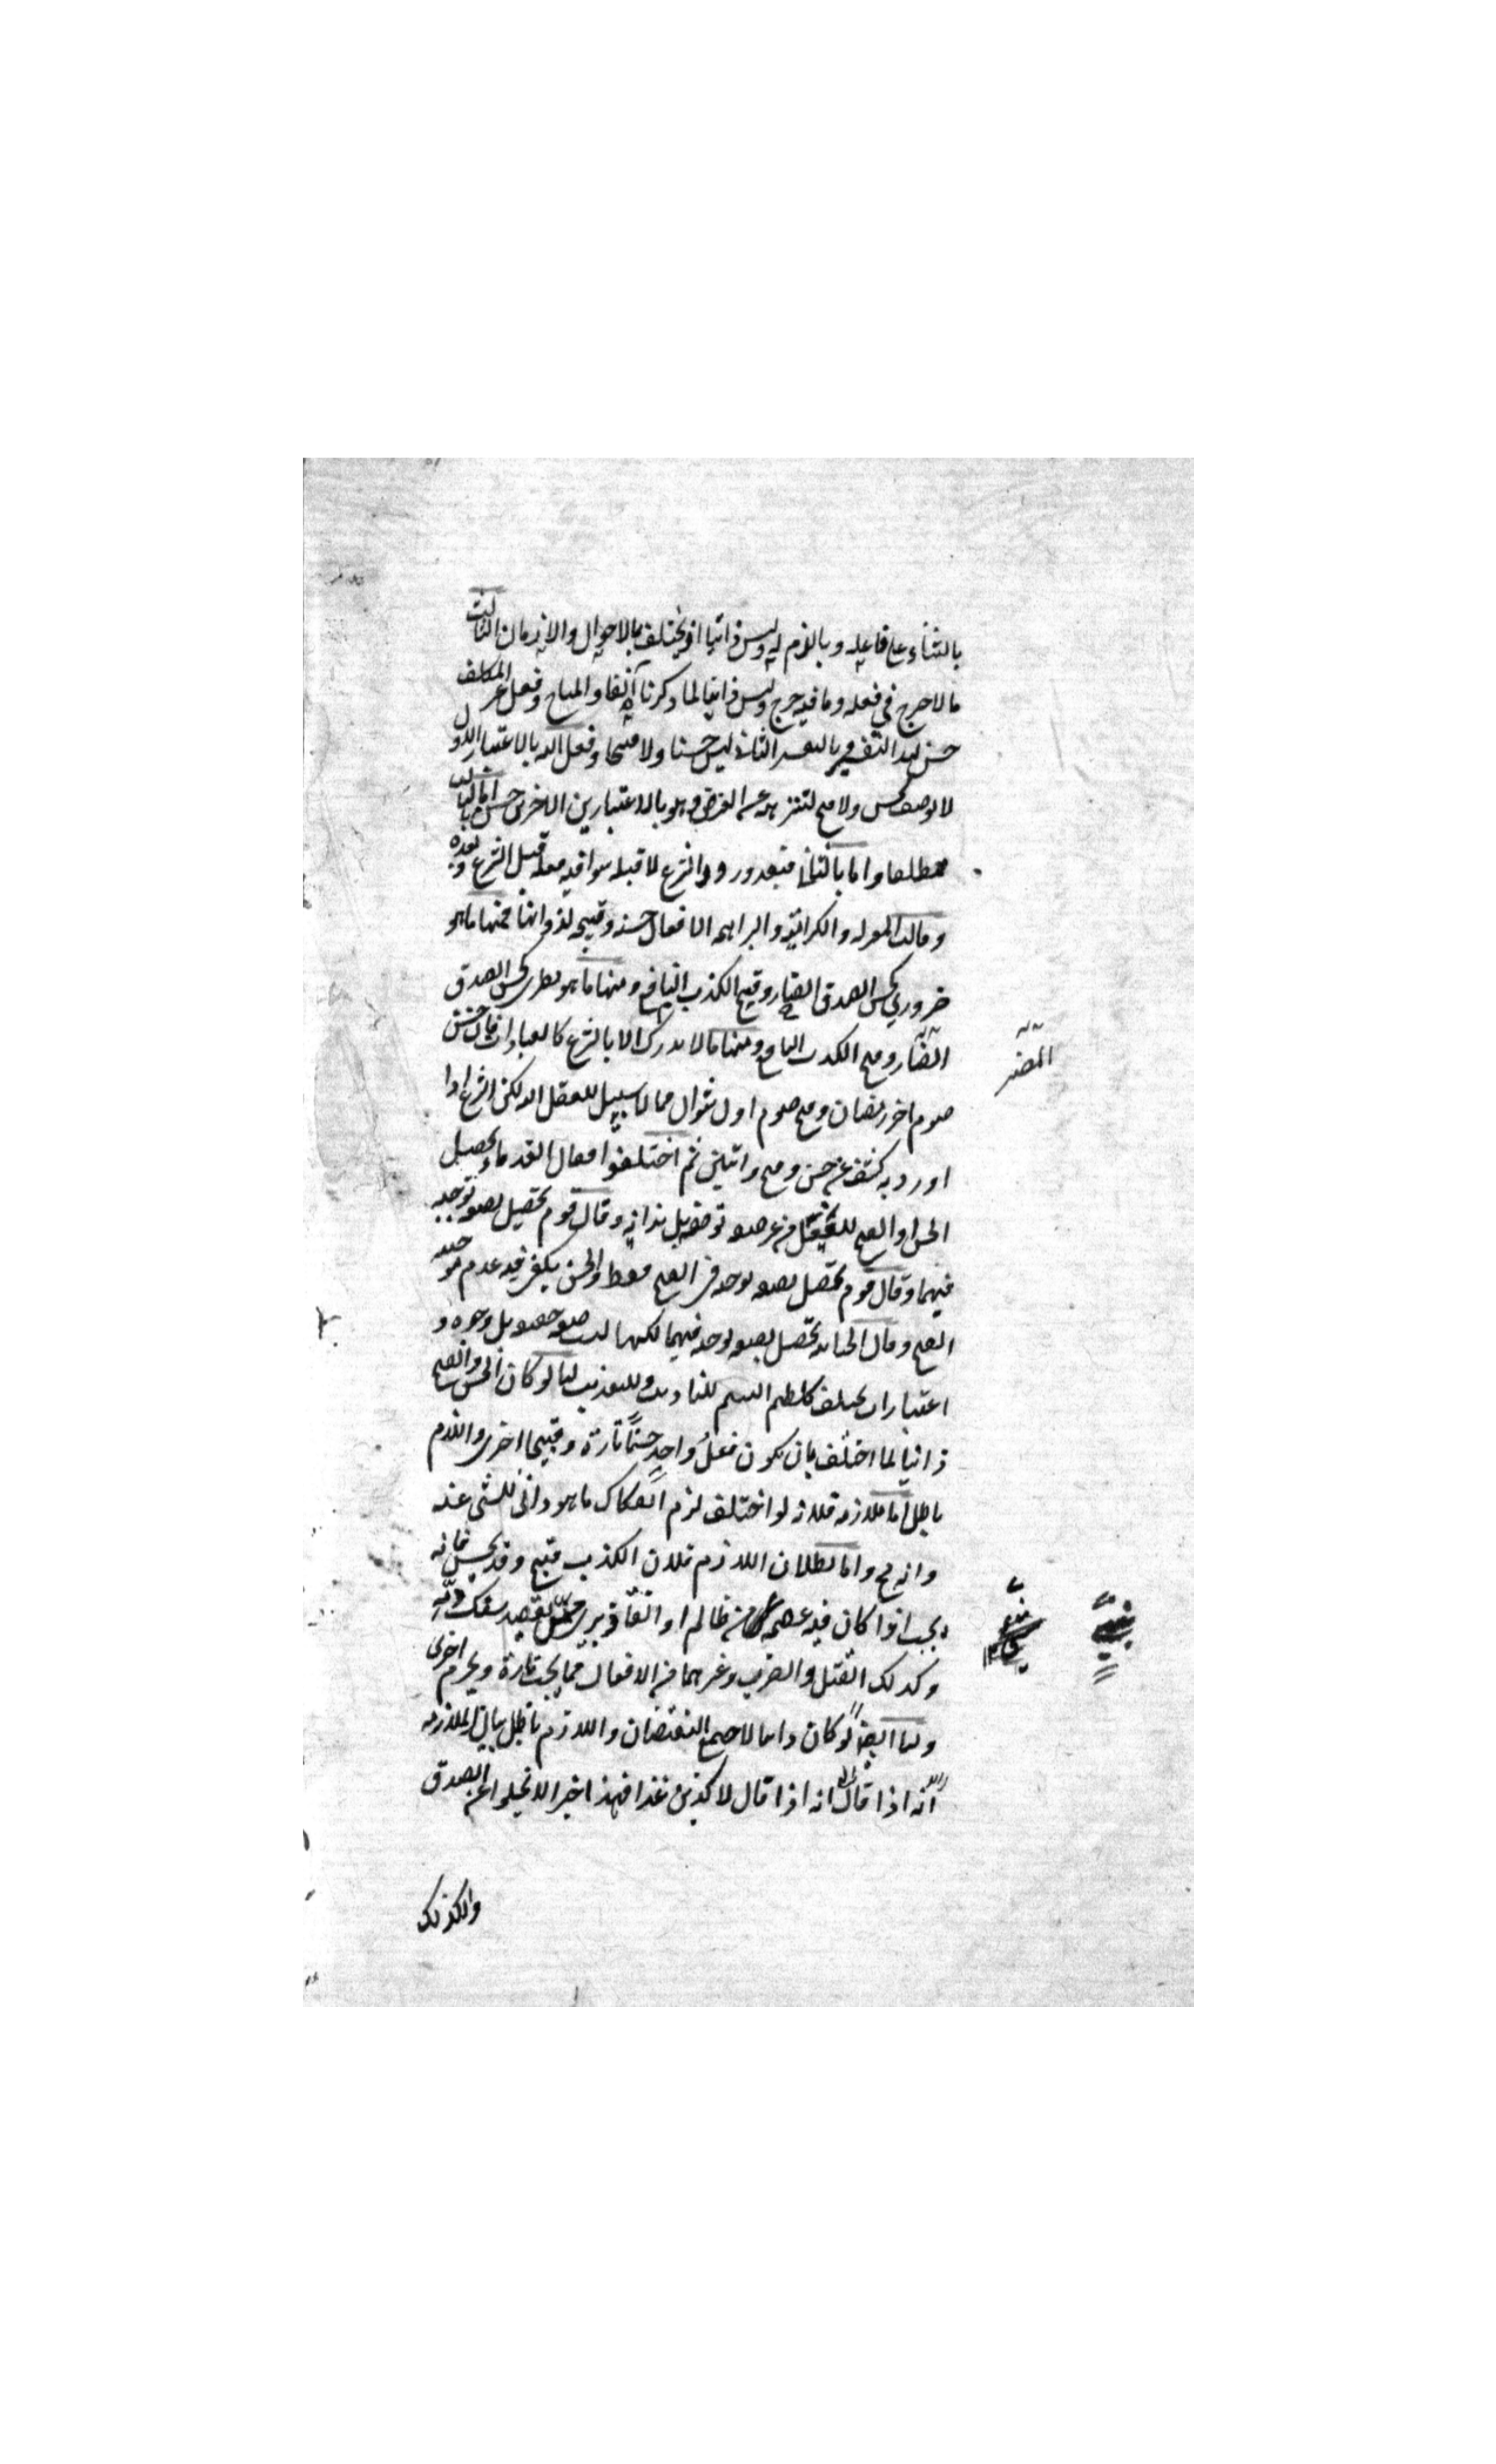 بالثناء على فاعله وبالذم له وليس ذاتيا اذ يختلف بالاحوال والازمان الثالث
ما لا حرج في فعله وما فيه حرج وليس ذاتيا لما ذكرنا آنفا والمباح وفعل غير المكلف
حسن بهذا التفسير وبالتفسير الثاني ليس حسنا ولا قبيحا وفعل الله بالاعتبار الاول
لا يوصف بحسن ولا قبح لتنزهه عن الغرض وهو بالاعتبارين الاخرين حسن اما بالثالث
مطلقا واما بالثاني فبعد ورود الشرع لا قبله سواء فيه فعله قبل الشرع وبعده
وقالت المعتزلة والكرامية والبراهمة الافعال حسنة وقبيحة لذواتها فمنها ما هو
ضروري كحسن الصدق النافع وقبح الكذب الضار ومنها ما هو نظري كحسن الصدق
الضار وقبح الكذب النافع ومنها ما لا يدرك الا بالشرع كالعبادات فان حسن
المضر
صوم اخر رمضان وقبح صوم اول شوال مما لا سبيل للعقل اليه لكن الشرع اذا
اورد به كشف عن حسن وقبح ذاتيين ثم اختلفوا فقال القدماء يحصل
الحسن او القبح للفعل من غير صفة توجبه بل بذاته وقال قوم يحصل بصفة توجبه
فيهما وقال قوم يحصل بصفة توجبه في القبح فقط والحسن يكفي فيه عدم موجب
القبح وقال الجبائية يحصل بصفة توجبه فيهما لكنها ليست صفة حقيقية بل وجوه و
اعتبارات تختلف كلطم اليتيم للتاديب وللتعذيب لنا لو كان الحسن والقبح
ذاتيا لما اختلف بان يكون فعل واحد حسنا تارة وقبيحا اخرى واللازم
باطل اما الملازمة فلانه لو اختلف لزم انفكاك ما هو ذاتي للشي عنه
وانه مح واما بطلان اللازم فلان الكذب قبيح وقد يحسن فانه
يجب اذا كان فيه عصمة من ظالم او انقاذ بري ممن يقصد سفك دمه
وكذلك القتل والضرب وغيرهما من الافعال مما يجب تارة ويحرم اخرى
ولنا ايضا لو كان ذاتيا لاجتمع النقيضان واللازم باطل بيان الملازمة
انه اذا قال انه اذا قال لاكذبن غدا فهذا خبر لا يخلو عن الصدق
والكذ لك